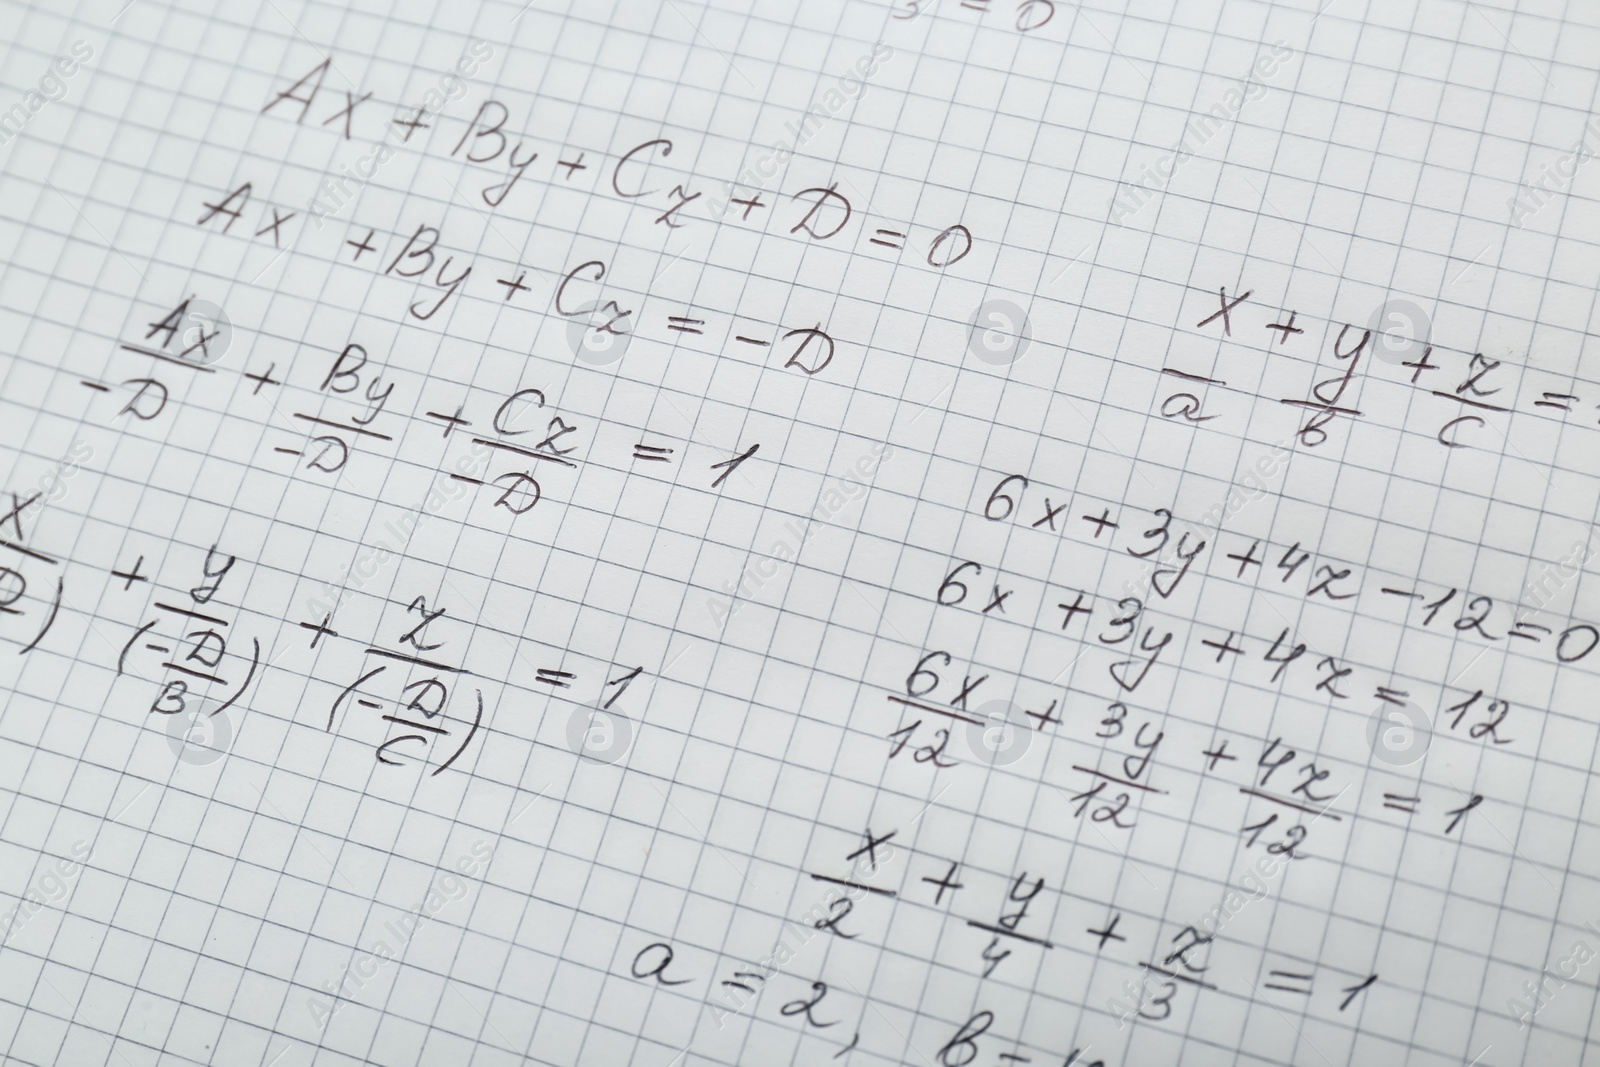 3 = 0
Ax + By + Cz + D = 0
Ax + By + Cz = -D
Ax/-D + By/-D + Cz/-D = 1
x/ D) + y/(-D/B) + z/(-D/C) = 1
x/a + y/b + z/c =
6x + 3y + 4z - 12 = 0
6x + 3y + 4z = 12
6x/12 + 3y/12 + 4z/12 = 1
x/2 + y/4 + z/3 = 1
a = 2, b =
Africa Images